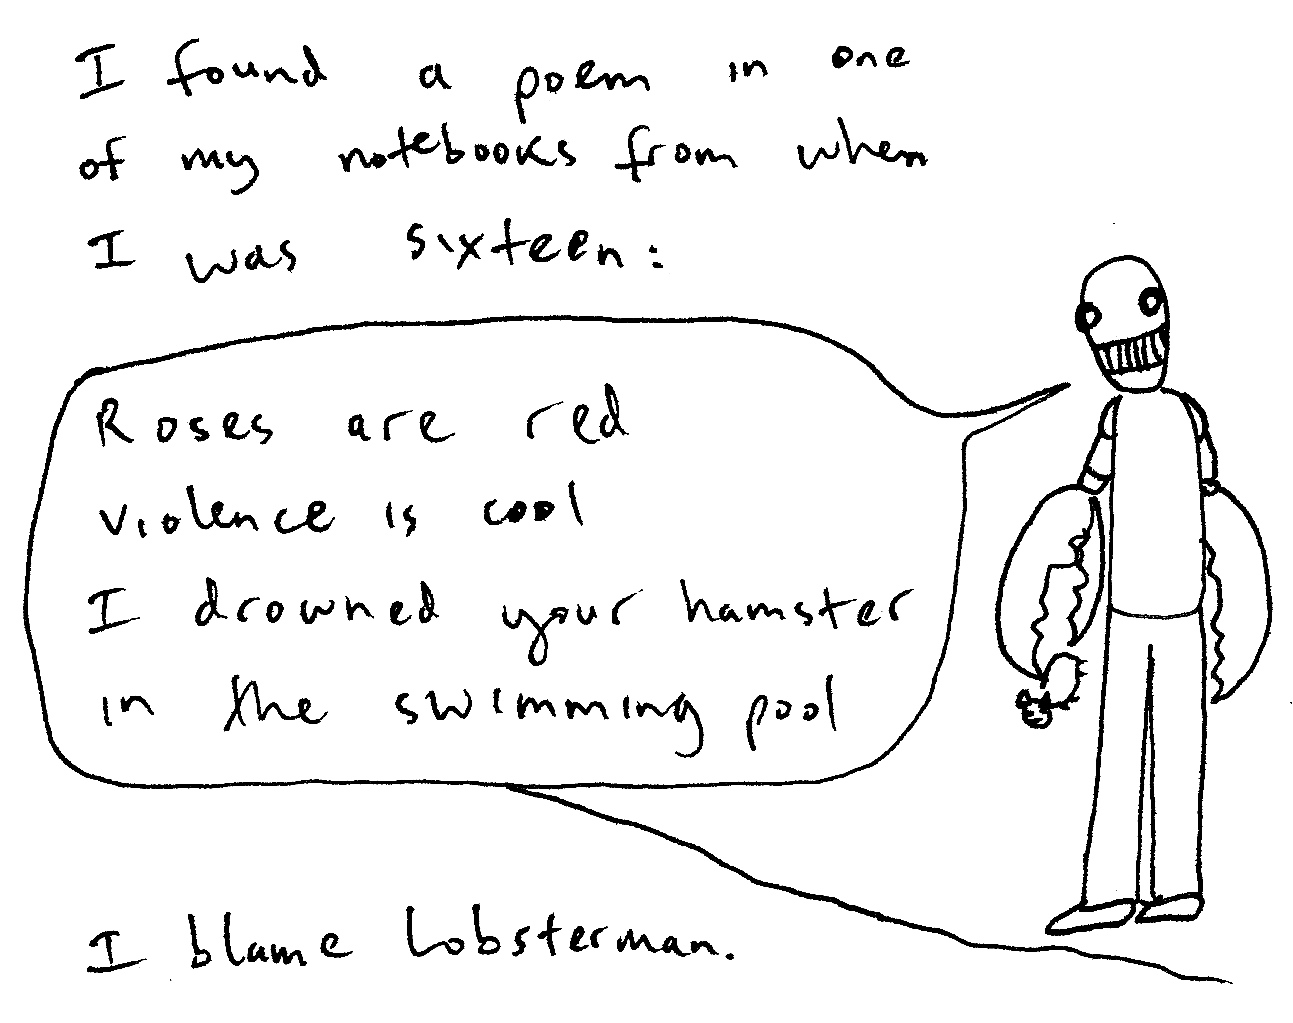 I found a poem in one
of my notebooks from when
I was sixteen:
Roses are red
violence is cool
I drowned your hamster
in the swimming pool
I blame lobsterman.